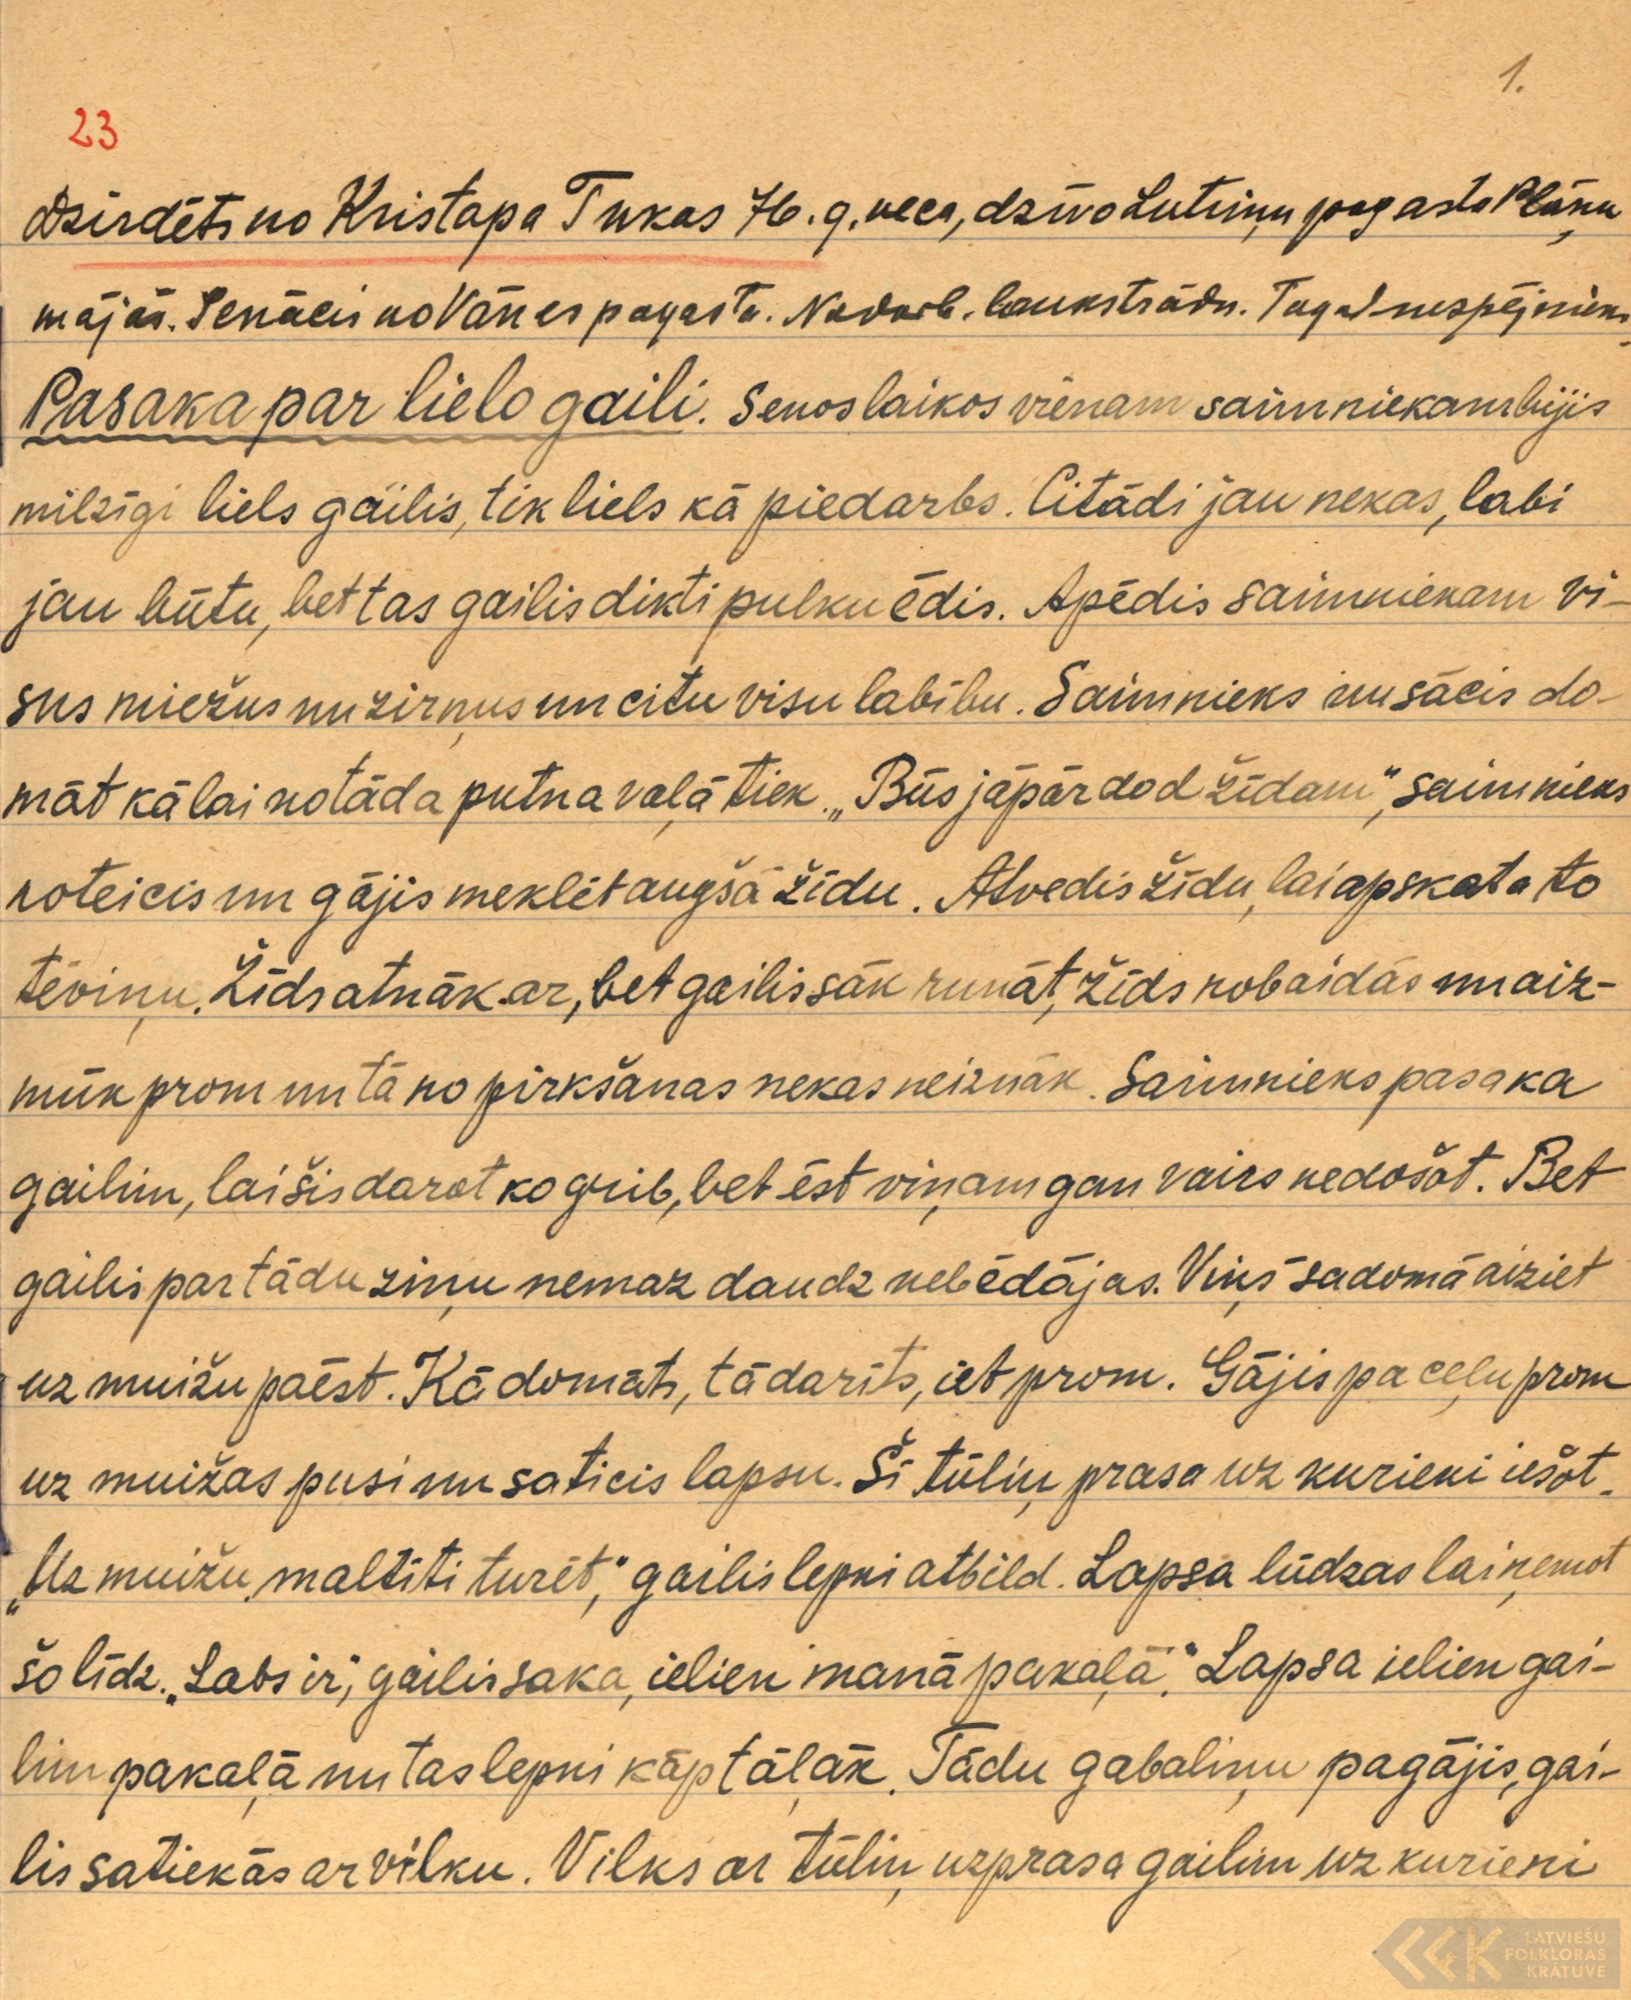 1.
23
Dzirdēts no Kristapa Tukas 76. g. veca, dzīvo Lutriņu pagasta Plānu
mājās. Ienācis no Vānes pagasta. Nodarb. laukstrādn. Tagad nespējnieks.
Pasaka par lielo gaili. Senos laikos vienam saimniekam bijis
milzīgi liels gailis, tik liels kā piedarbs. Citādi jau nekas, labi
jau būtu, bet tas gailis dikti pulku ēdis. Apēdis saimniekam vi-
sus miežus un zirņus un citu visu labību. Saimnieks nu sācis do-
māt kā lai no tāda putna vaļā tiek. „Būs jāpārdod žīdam”, saimnieks
noteicis un gājis meklēt augšā žīdu. Atvedis žīdu, lai apskata to
tēviņu. Žīds atnāk ar, bet gailis sāk runāt, žīds nobaidās un aiz-
mūk prom un tā no pirkšanas nekas neiznāk. Saimnieks pasaka
gailim, lai šis darot ko grib, bet ēst viņam gan vairs nedošot. Bet
gailis par tādu ziņu nemaz daudz nebēdājas. Viņš sadomā aiziet
uz muižu paēst. Kā domāts, tā darīts, iet prom. Gājis pa ceļu prom
uz muižas pusi un saticis lapsu. Šī tūliņ prasa uz kurieni iešot.
„Uz muižu maltīti turēt,” gailis lepni atbild. Lapsa lūdzas lai ņemot
šo līdz. „Labs ir”, gailis saka, „ielien manā pakaļā.” Lapsa ielien gai-
lim pakaļā un tas lepni kāp tālāk. Tādu gabaliņu pagājis, gai-
lis satiekās ar vilku. Vilks ar tūliņ uzprasa gailim uz kurieni
LATVIEŠU
FOLKLORAS
KRĀTUVE